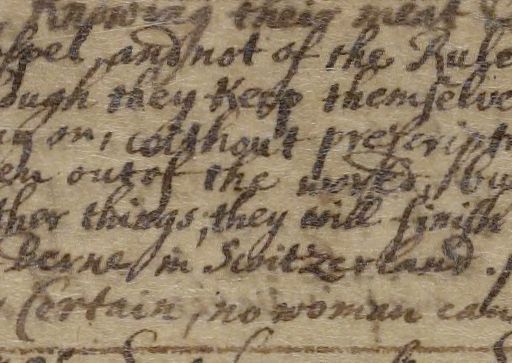 Knowing their meat
and not of the Rule
they Keep themselve
on, without prescript
out of the world, by
ther things; they will finish
berne in Switzerland.
Certain, no woman can